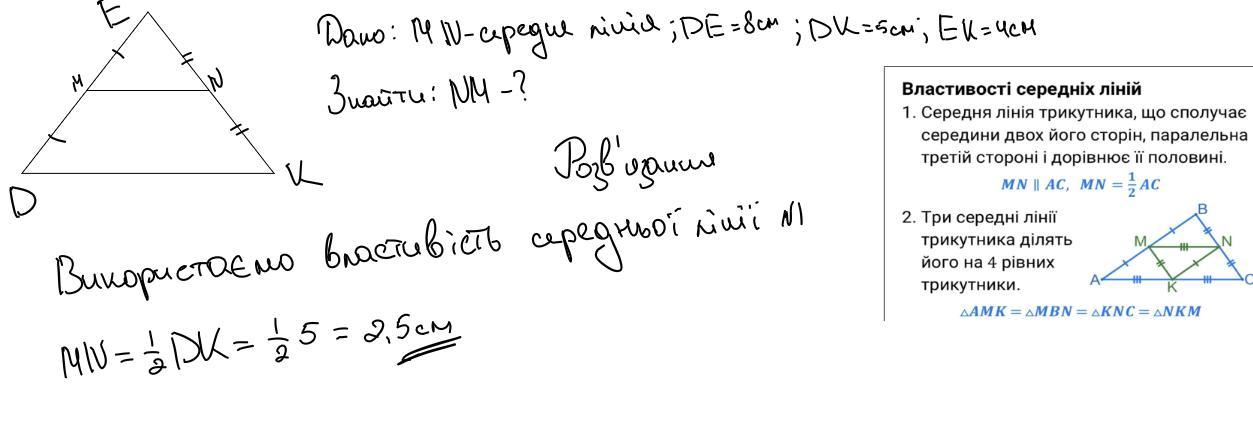 E
M
N
D
K
Дано: MN-середня лінія; DE=8см; DK=5см; EK=4см
Знайти: NM-?
Розв'язання
Використаємо властивість середньої лінії №1
MN = 1/2 DK = 1/2 5 = 2,5см
Властивості середніх ліній
1. Середня лінія трикутника, що сполучає
середини двох його сторін, паралельна
третій стороні і дорівнює її половині.
MN ∥ AC, MN = 1/2 AC
2. Три середні лінії
трикутника ділять
його на 4 рівних
трикутники.
B
M
N
A
K
C
△AMK = △MBN = △KNC = △NKM